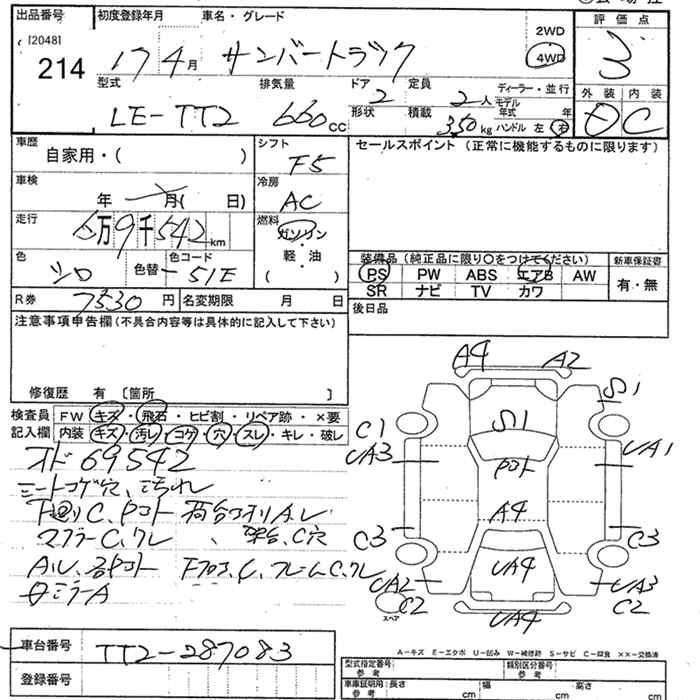 出品番号 初度登録年月 車名・グレード 評価点
[2048] 214 17 4月 サンバートラック 2WD 4WD 3
型式 排気量 ドア 2 定員 2人 ディーラー・並行 モデル 年式 年 外装 内装
LE-TT2 660cc 形状 積載 350kg ハンドル 左 右 C
車歴 自家用・( ) シフト F5 セールスポイント (正常に機能するものに限ります)
車検 年 月( 日) 冷房 AC
走行 6万9千542km 燃料 ガソリン・軽・油 ( )
色 シロ 色替 色コード 51E
装備品 (純正品に限り○をつけてください) 新車保証書
PS PW ABS エアB AW 有・無
SR ナビ TV カワ
R券 7530円 名変期限 月 日 後日品
注意事項申告欄(不具合内容等は具体的に記入して下さい)
修復歴 有 〔箇所 〕
検査員 FW キズ・飛石・ヒビ割・リペア跡・×要
記入欄 内装 キズ・汚レ・コゲ・穴・スレ・キレ・破レ
オド 69542
シートコゲ穴、ヨゴレ
下廻りC、Pコト 荷台 アル
マフラーC、クレ 、 C穴
Aル、各Pコト Fフロア、C、フレームC、クレ
ミラーA
A4 A2
S1 S1
C1 UA3 UA1
Pコト
A4
C3 C3
UA4
UA2 C2 UA3 C2
スペア UA4
A-キズ E-エクボ U-凹み W-補修跡 S-サビ C-腐食 ××-交換済
車台番号 TT2-287083
登録番号
型式指定番号 参考 類別区分番号 参考
車庫証明用 参考 長さ cm 幅 cm 高さ cm